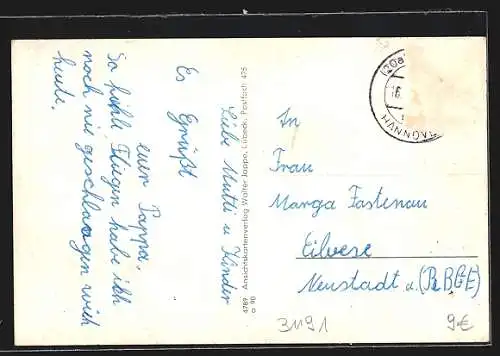 Liebe Mutti u Kinder
Es Grüßt
euer Pappa.
So kühle Fliegen habe ich
noch nie geschlaagen wich
heute.
4789 Ansichtskartenverlag Walter Jappe, Lübeck, Postfach 475
a 90
(20a
HANNOV
In
Frau
Marga Fastenau
Eilvese
Neustadt a.(RBGE)
3491
9€